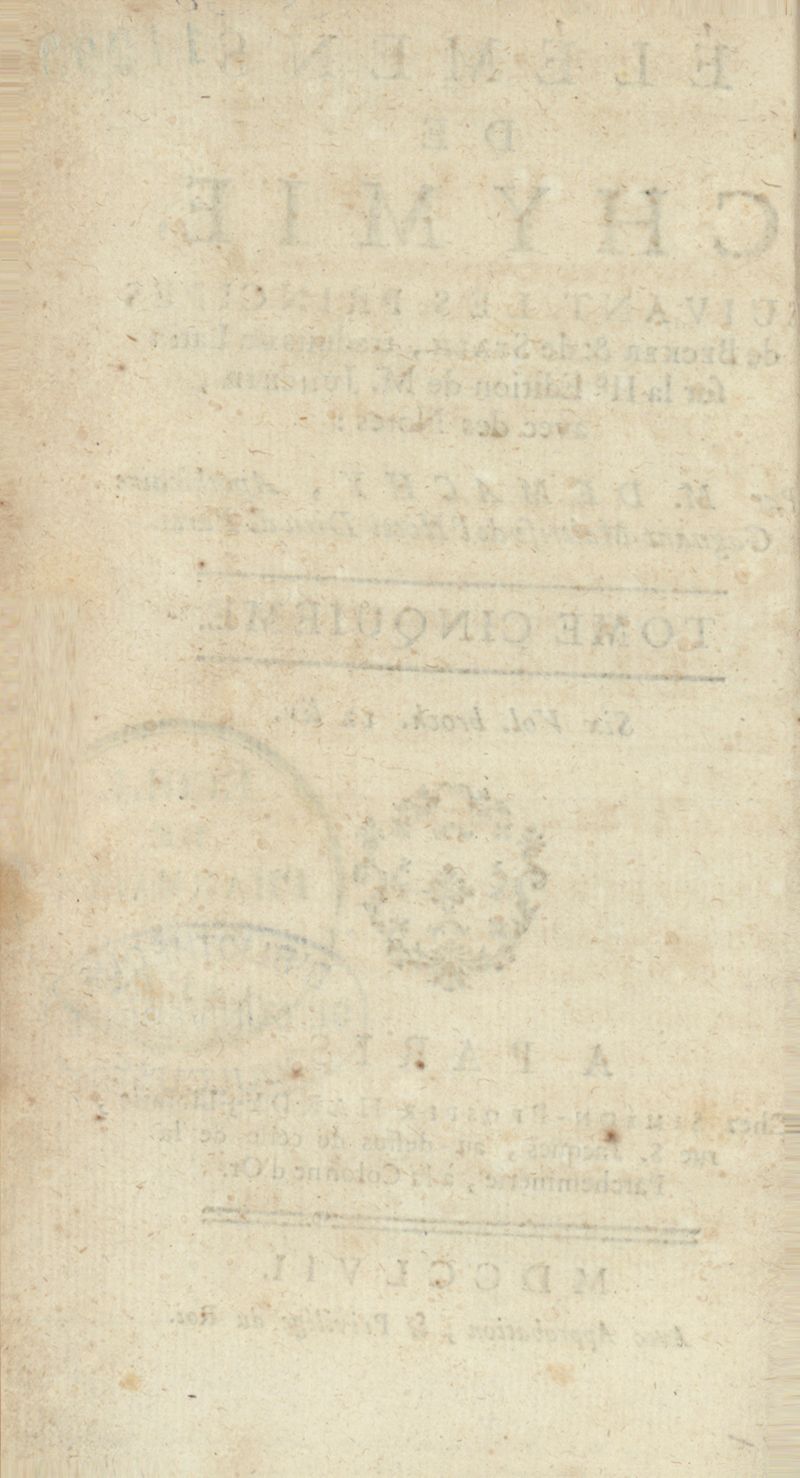 ÉLÉMENS
DE
CHYMIE
SUIVANT LES PRINCIPES
de BECKER & de STAHL, traduits du Latin
sur la IIe Édition de M. JUNCKER,
avec des Notes :
Par M. DEMACHY, Apothicaire
Gagnant-Maîtrise de l'Hôtel-Dieu de Paris.
TOME CINQUIEME.
Six Vol. broch. 12 liv.
A PARIS,
Chez SIMÉON-PROSPER HARDY, Libraire,
rue S. Jacques, au-dessus de celle de la
Parcheminerie, à la Colonne d'Or.
MDCCLVII.
Avec Approbation, & Privilége du Roi.